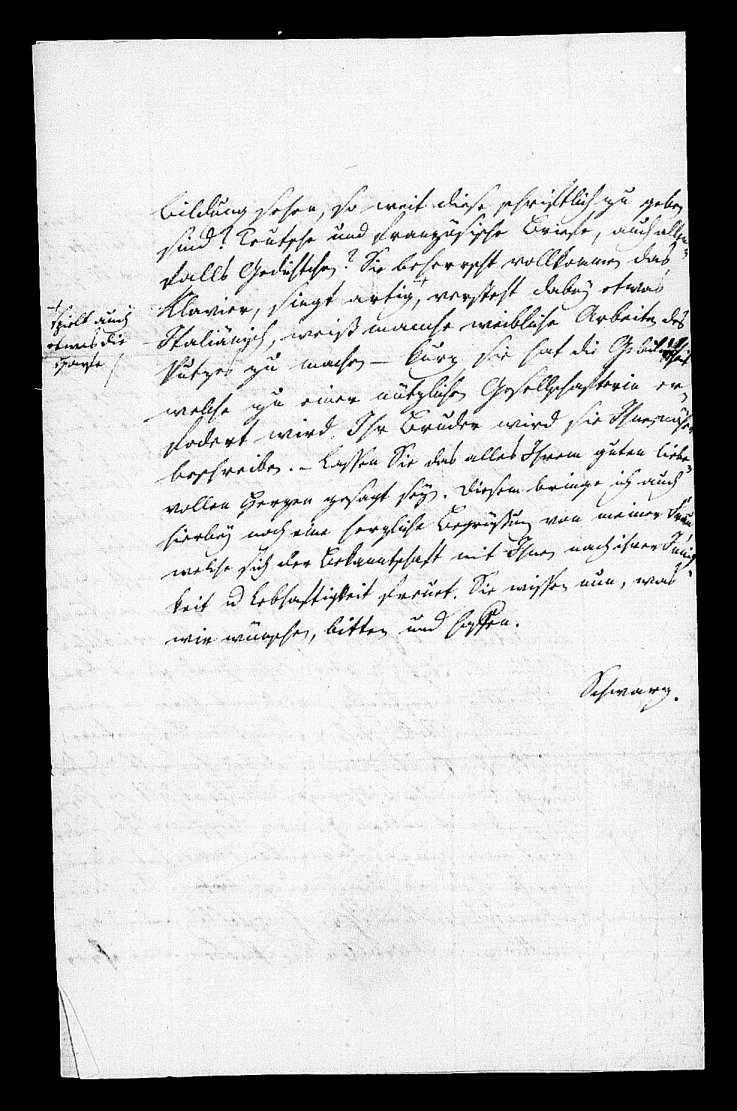 Bildung sehen, so weit diese schriftlich zu geben
sind? Teutsche und französische Briefe, auch allen-
falls Gedichtchen? Sie beherrscht vollkommen das
Klavier, singt artig, + versteht dabey etwas
Italiänisch, weiß manche weibliche Arbeiten des
Putzes zu machen – kurz sie hat die
welche zu einer nützlichen Gesellschafterin er-
fodert wird. Ihr Bruder wird sie Ihnen näher
beschreiben. – Lassen Sie das alles Ihrem guten liebe-
vollen Herzen gesagt seyn. Diesem bringe ich auch
hierbey noch eine herzliche Begrüßung von meiner Frau,
welche sich der Bekanntschaft mit Ihnen nach ihrer Innig-
keit u Lebhaftigkeit freuet. Sie wissen nun, was
wir wünschen, bitten und hoffen.
Schwarz.
+ spielt auch
etwas die
Harfe /